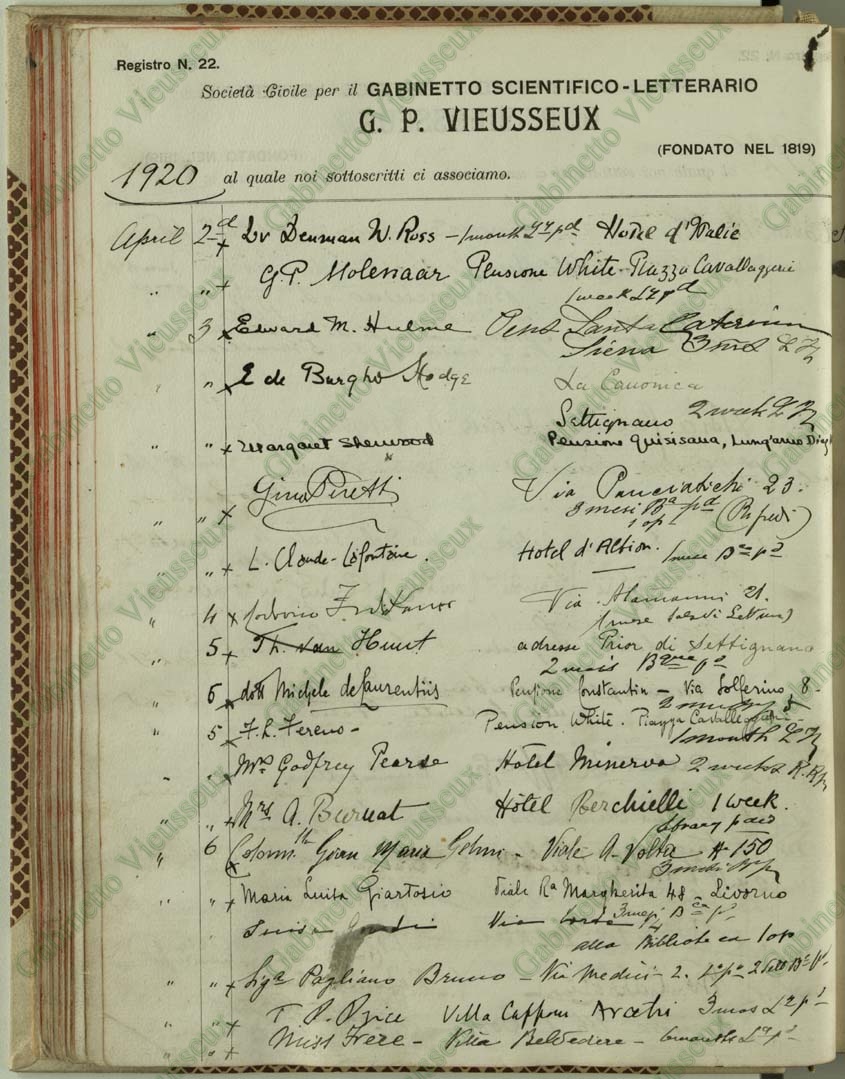 Registro N. 22.
Società Civile per il GABINETTO SCIENTIFICO-LETTERARIO
G. P. VIEUSSEUX
(FONDATO NEL 1819)
1920 al quale noi sottoscritti ci associamo.
April 2d Dr Denman W. Ross - 1 month pd Hotel d'Italie
" " G. P. Molenaar Pensione White Piazza Cavallaggeri
1 week pd
" 3 Edward M. Hulme Pens Santa Caterina
Siena 3 ms
" E de Burgho Hodge La Canonica
Settignano 2 week
" " Margaret Sherwood Pensione Quisisana, Lung'arno Diaz
" " Gino Peretti Via Panciatichi 23.
3 mesi Ba pd
1 op (Rifredi)
" " L. Claude-Lafontaine. Hotel d'Albion. 1 mese pd
" 4 Via Alamanni 21.
(1 mese Sala di Lettura)
" 5 Th. van Hunt adresse Prior di Settignano
2 mois Bque
6 dott Michele de Laurentiis Pensione Constantin - Via Solferino, 8 -
" 5 F. L. Fereno - Pension White. Piazza Cavalleggeri -
1 month
" Mrs Godfrey Pearse Hôtel Minerva 2 weeks R.R
" " Mrs A. Burnat Hôtel Berchielli 1 week.
library paid
" 6 Gian Maria - Viale A. Volta # 150
" Maria Luisa Giartosio Viale Ra Margherita 48 - Livorno
3 mesi
Luisa Via
alla Biblioteca 1 op
" " Siga Pagliano Bruno - Via Medici - 2.
" " Villa Capponi Arcetri 3 mos
" " Miss Frere - Villa Belvedere - 6 months
Gabinetto Vieusseux